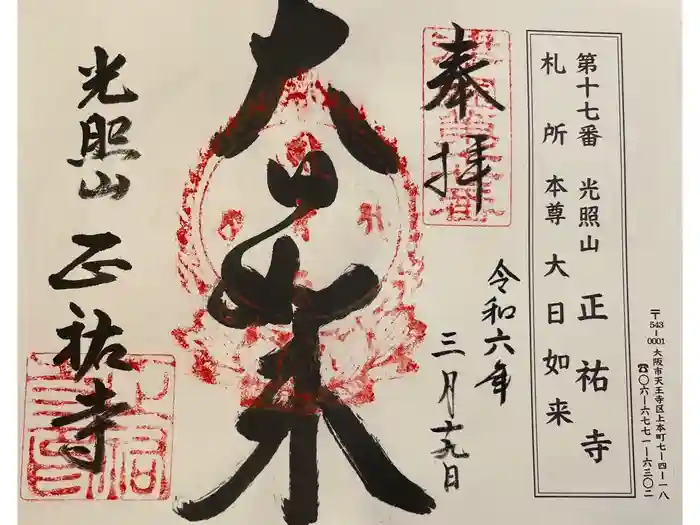 〒543-0001 大阪市天王寺区上本町七-四-一八
☎〇六-六七七一-六三〇二
第十七番 光照山 正祐寺
札所本尊 大日如来
奉拝
令和六年
三月十九日
大日如来
光照山 正祐寺